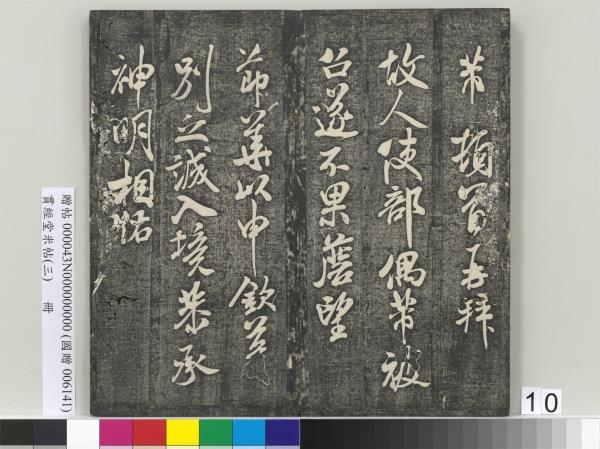 芾頓首再拜
故人使部偶芾被
召遂不果瞻望
節華以申欽
別之誠入境恭承
神明相佑
贈帖 000043N000000000 (國贈 006141)
貫經堂米帖(三) 冊
10